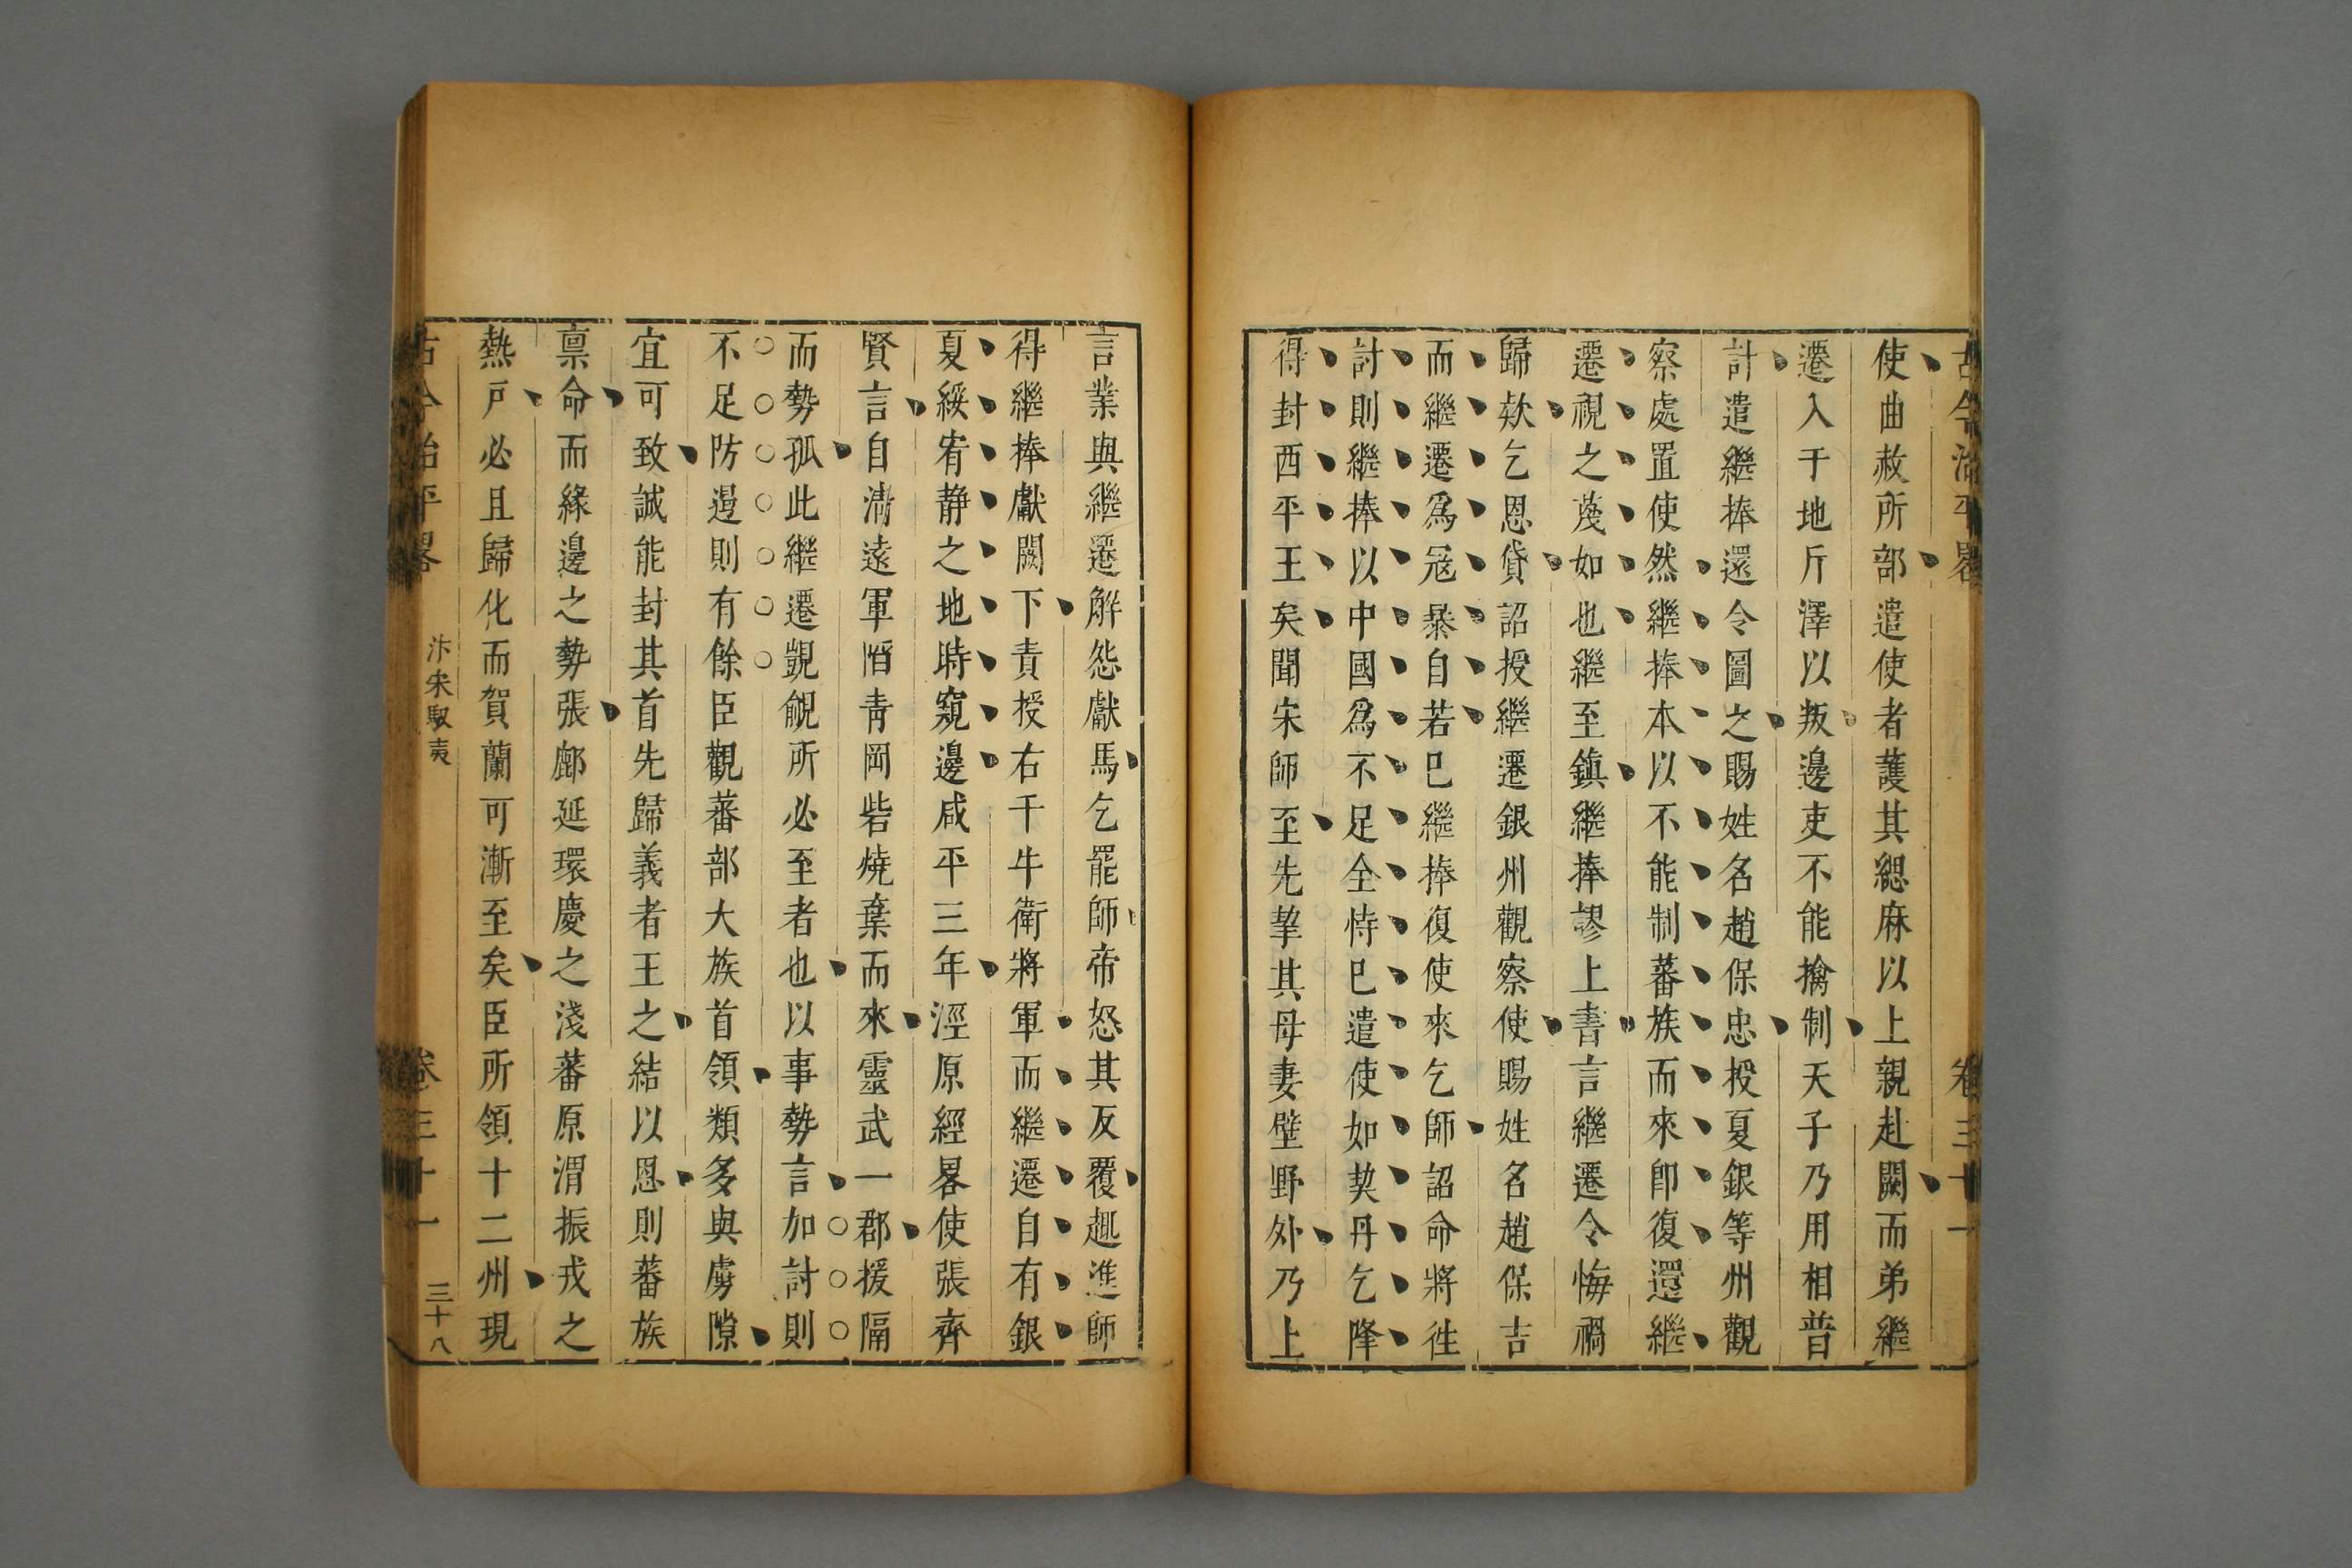 古今治平畧 卷三十一
使曲赦所部遣使者護其緦麻以上親赴闕而弟繼
遷入于地斤澤以叛邊吏不能擒制天子乃用相普
計遣繼捧還令圖之賜姓名趙保忠授夏銀等州觀
察處置使然繼捧本以不能制蕃族而來卽復還繼
遷視之蔑如也繼至鎮繼捧謬上書言繼遷令悔禍
歸欵乞恩貸詔授繼遷銀州觀察使賜姓名趙保吉
而繼遷爲寇暴自若已繼捧復使來乞師詔命將徃
討則繼捧以中國爲不足全恃已遣使如契丹乞降
得封西平王矣聞宋師至先挈其母妻壁野外乃上
言業與繼遷解怨獻馬乞罷師帝怒其反覆趣進師
得繼捧獻闕下責授右千牛衛將軍而繼遷自有銀
夏綏宥静之地時窺邊咸平三年涇原經畧使張齊
賢言自淸遠軍酒青岡砦燒棄而來靈武一郡援隔
而勢孤此繼遷覬覦所必至者也以事勢言加討則
不足防邊則有餘臣觀蕃部大族首領類多與虜隙
宜可致誠能封其首先歸義者王之結以恩則蕃族
禀命而緣邊之勢張鄜延環慶之淺蕃原渭振戎之
熟戸必且歸化而賀蘭可漸至矣臣所領十二州現
古今治平畧 汴宋馭夷 卷三十一 三十八